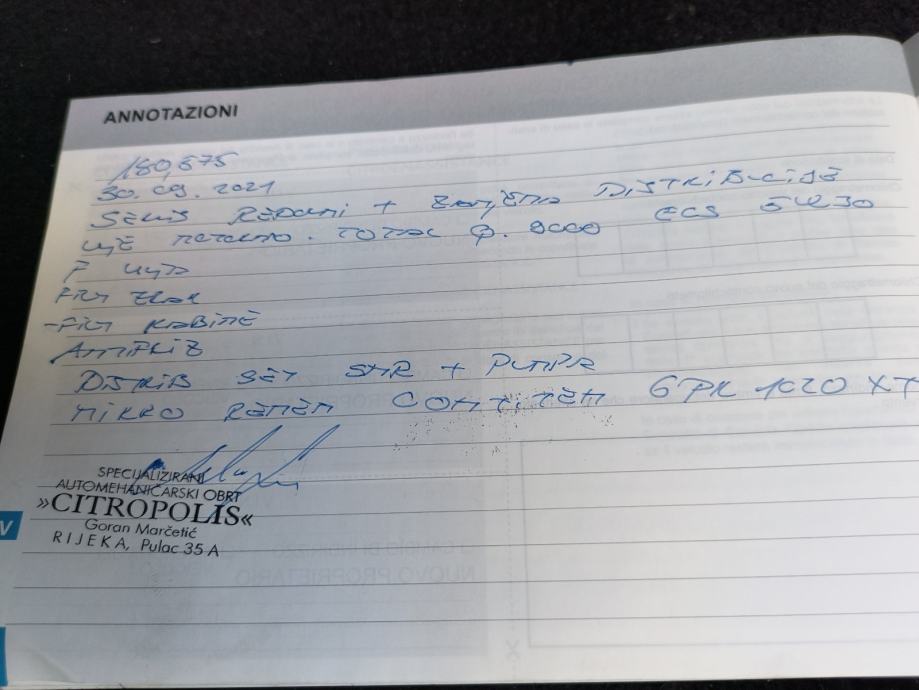 ANNOTAZIONI
180,575
30.09.2021
SERVIS REDOVNI + ZAMJENA DISTRIBUCIJE
ULJE MOTORNO. TOTAL Q. 9000 ECS 5W30
F ULJA
FILT ZRAK
-FILT KABINE
ANTIFRIZ
DISTRIB SET SNR + PUMPA
MIKRO REMEN CONTITEH 6PK 1020 XT
SPECIJALIZIRANI
AUTOMEHANIČARSKI OBRT
»CITROPOLIS«
Goran Marčetić
RIJEKA, Pulac 35 A
NUOVO PROPRIETARIO